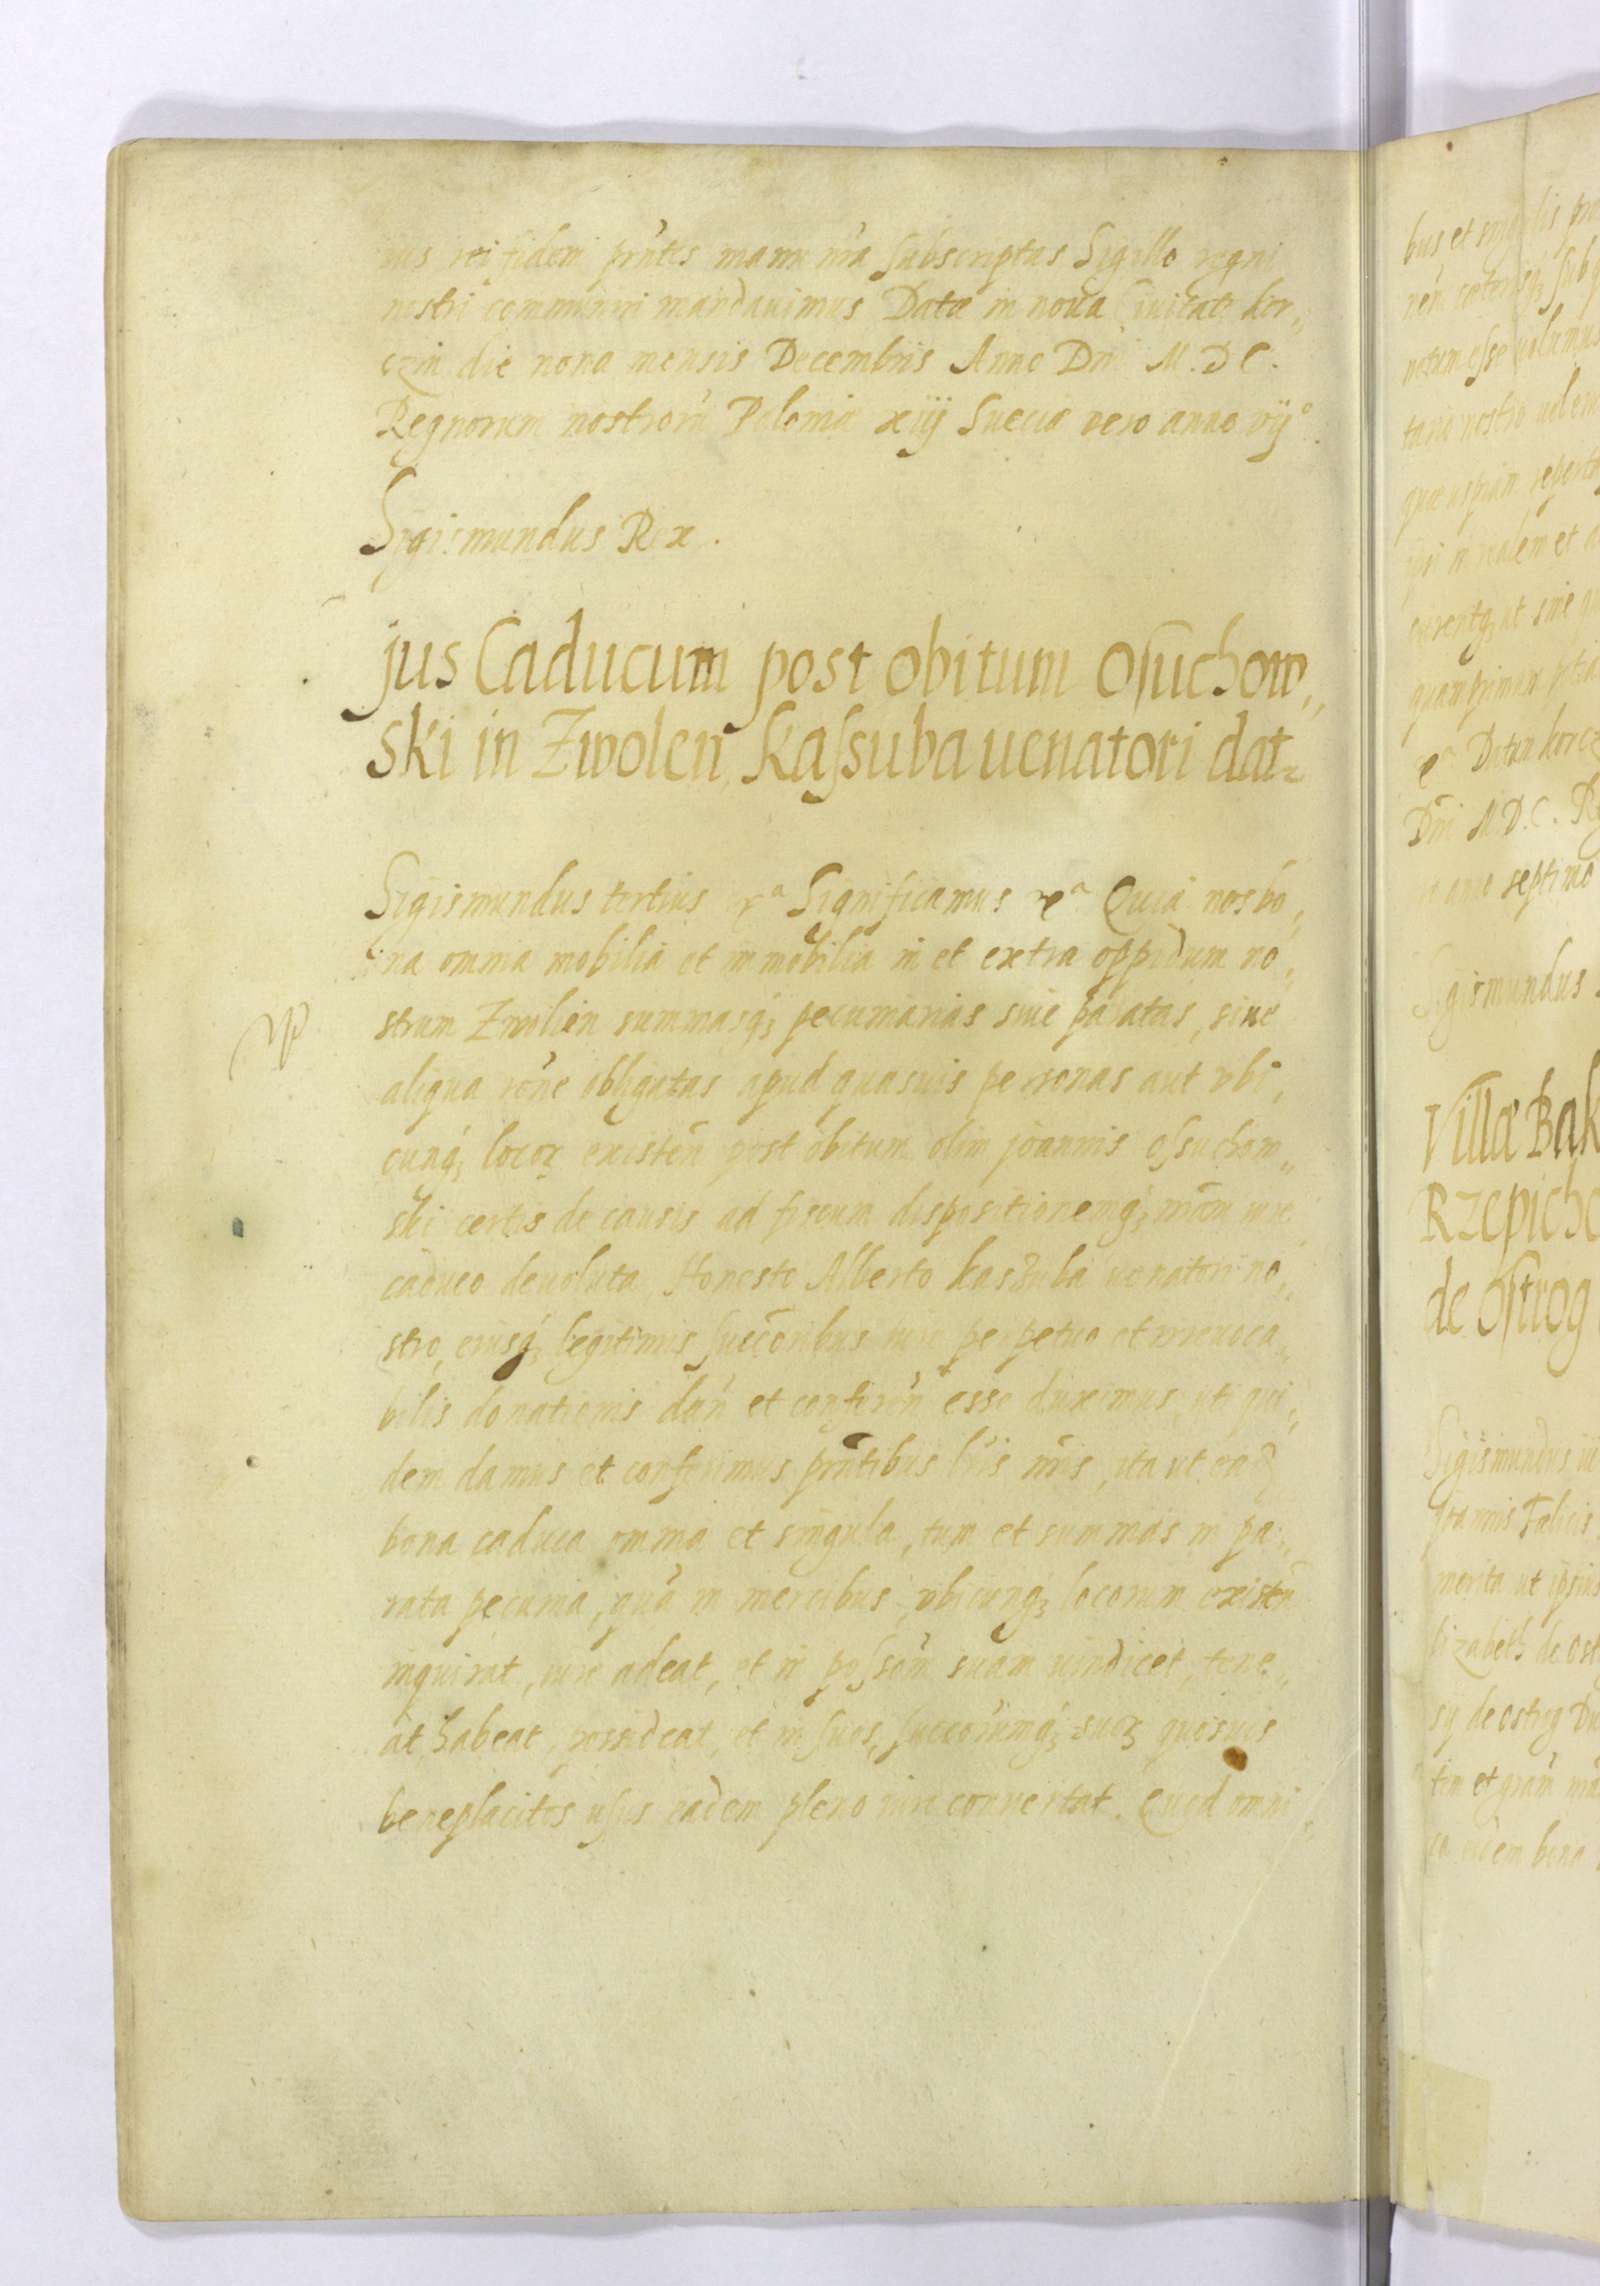 ius rei fidem pn̄tes manu nr̄a subscriptas Sigillo regni
nostri communiri mandauimus Datæ in noua Ciuitate kor„
czin die nona mensis Decembris Anno Dn̄i M.D C.
Regnorum nostrorū Poloniæ xiij Sueciæ vero anno vij°
Sigismundus Rex.
jus Caducum post obitum osuchow„
ski in Zwolen, Kassuba uenatori dat
Sigismundus tertius ꝛcᵃ Significamus ꝛcᵃ Quia nos bo„
na omnia mobilia et immobilia in et extra oppidum no„
strum Zwolien summasq; pecuniarias siue paratas, siue
aliqua rōne obligatas apud quasuis personas aut vbi„
cunq; locoꝝ existen̄ post obitum olim joannis ossuchow„
ski certis de causis ad fiscum dispositionemq; nrām iure
caduco deuoluta Honesto Alberto kasszuba uenatori no„
stro, eiusq; legitimis succ̄oribus iure perpetuo et irreuoca„
bilis donationis dan̄ et conferen̄ esse duximus, uti qui„
dem damus et conferimus pn̄tibus lr̄is nr̄is, ita ut ea
bona caduca omnia et singula, tum et summas in pa„
rata pecunia, quā in mercibus, vbicunq; locorum existen̄
inquirat, iure adeat, et in possōm suam uindicet, tene„
at habeat, possideat, et in suos, succorūmq; suoꝝ quosuis
beneplacitos usus eadem pleno iure conuertat. Quod omni„
bus et singulis
nēm cæterisq; sub
notum esse uolumus
tario nostro
quæuspiam
in realem et
ut sine
ꝛcᵃ Datæ
Dn̄i M.D.C.
anno septimo
Sigismundus
Villæ Bak
Rzepiche
de ostrog
Sigismundus
Joannis
merita ut ipsius
lizabeth de ost
sij de ostrog Du
tim et gratā
eadem bona